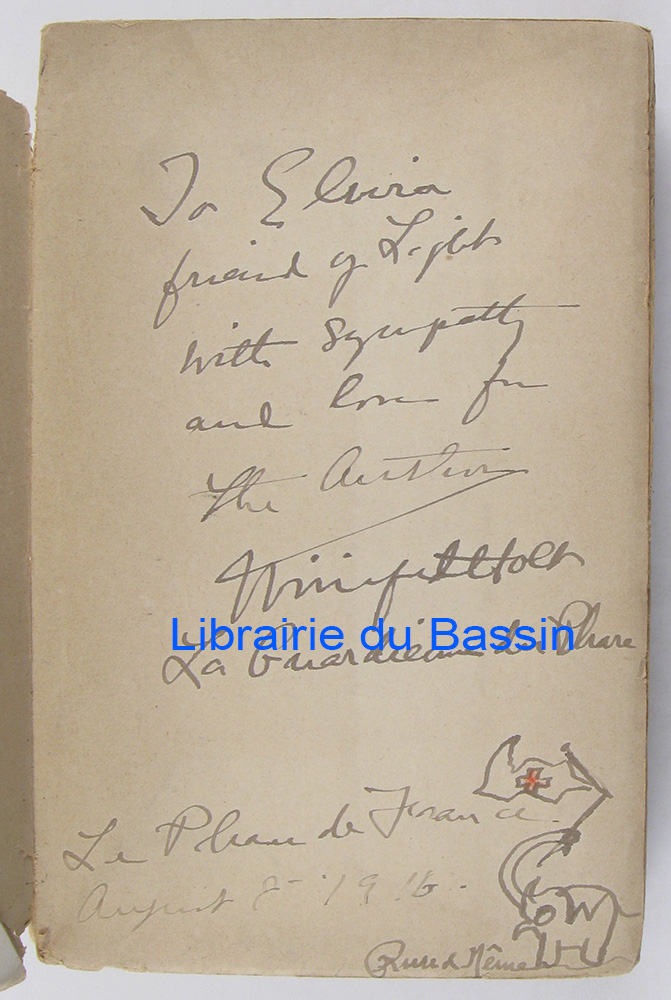 To Elvira
friend of Light
with sympathy
and love from
the Author
Winifred Holt
Librairie du Bassin
La Guardienne du Phare
Le Phare de France
August 8 1916.